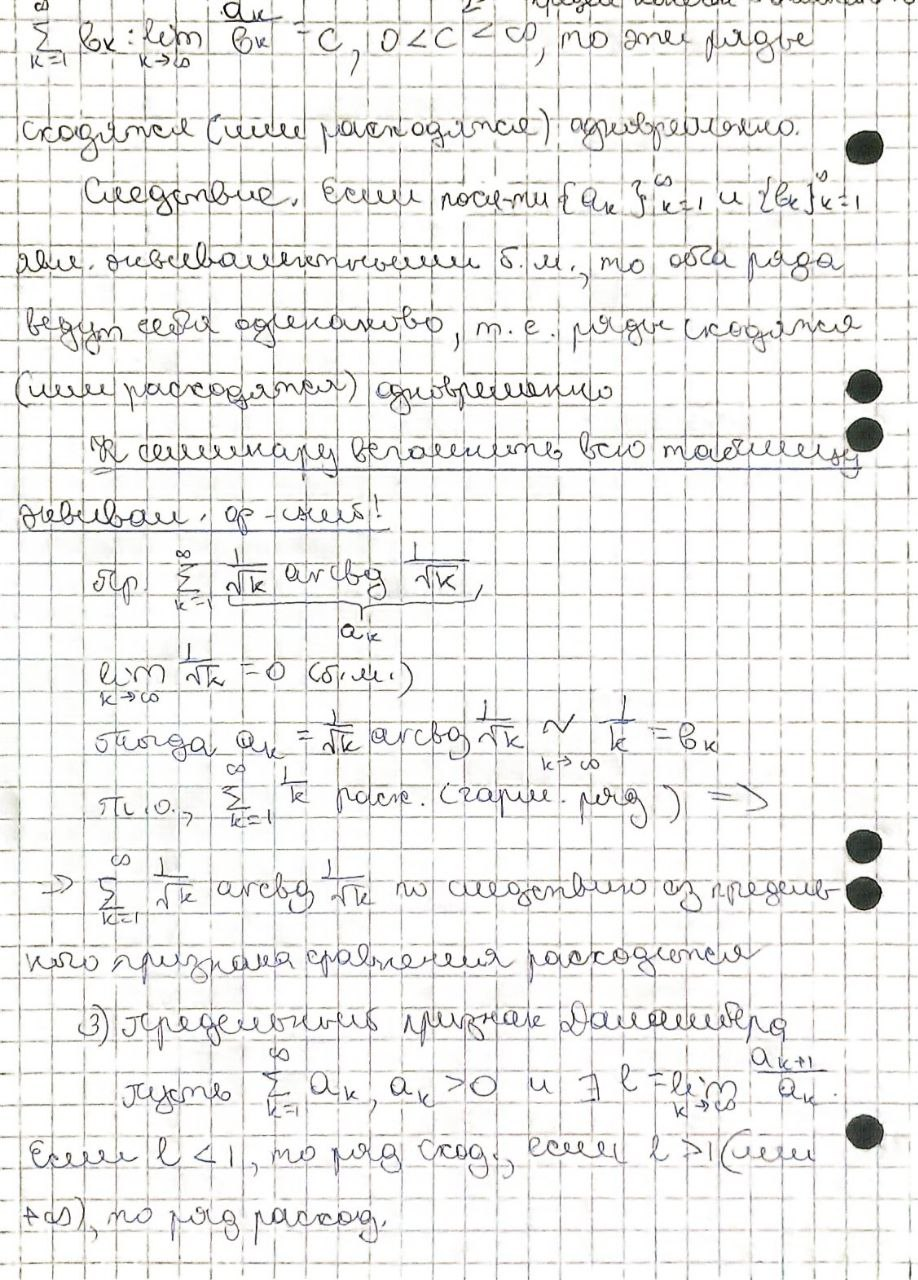 ∑_{k=1}^{∞} bₖ : lim_{k→∞} aₖ/bₖ = C, 0 < C < ∞, то эти ряды
сходятся (или расходятся) одновременно.
Следствие. Если посл-ти {aₖ}_{k=1}^{∞} и {bₖ}_{k=1}^{∞}
явл. эквивалентными б.м., то оба ряда
ведут себя одинаково, т.е. ряды сходятся
(или расходятся) одновременно
К семинару вспомнить всю таблицу
эквивал. ф-ций!
Пр. ∑_{k=1}^{∞} 1/√k arctg 1/√k,
aₖ
lim_{k→∞} 1/√k = 0 (б.м.)
Тогда aₖ = 1/√k arctg 1/√k ~_{k→∞} 1/k = bₖ
Т.о., ∑_{k=1}^{∞} 1/k расх. (гарм. ряд) =>
=> ∑_{k=1}^{∞} 1/√k arctg 1/√k по следствию из предель-
ного признака сравнения расходится
3) Предельный признак Даламбера
Пусть ∑_{k=1}^{∞} aₖ, aₖ > 0 и ∃ l = lim_{k→∞} aₖ₊₁/aₖ.
Если l < 1, то ряд сход., если l > 1 (или
+∞), то ряд расход.